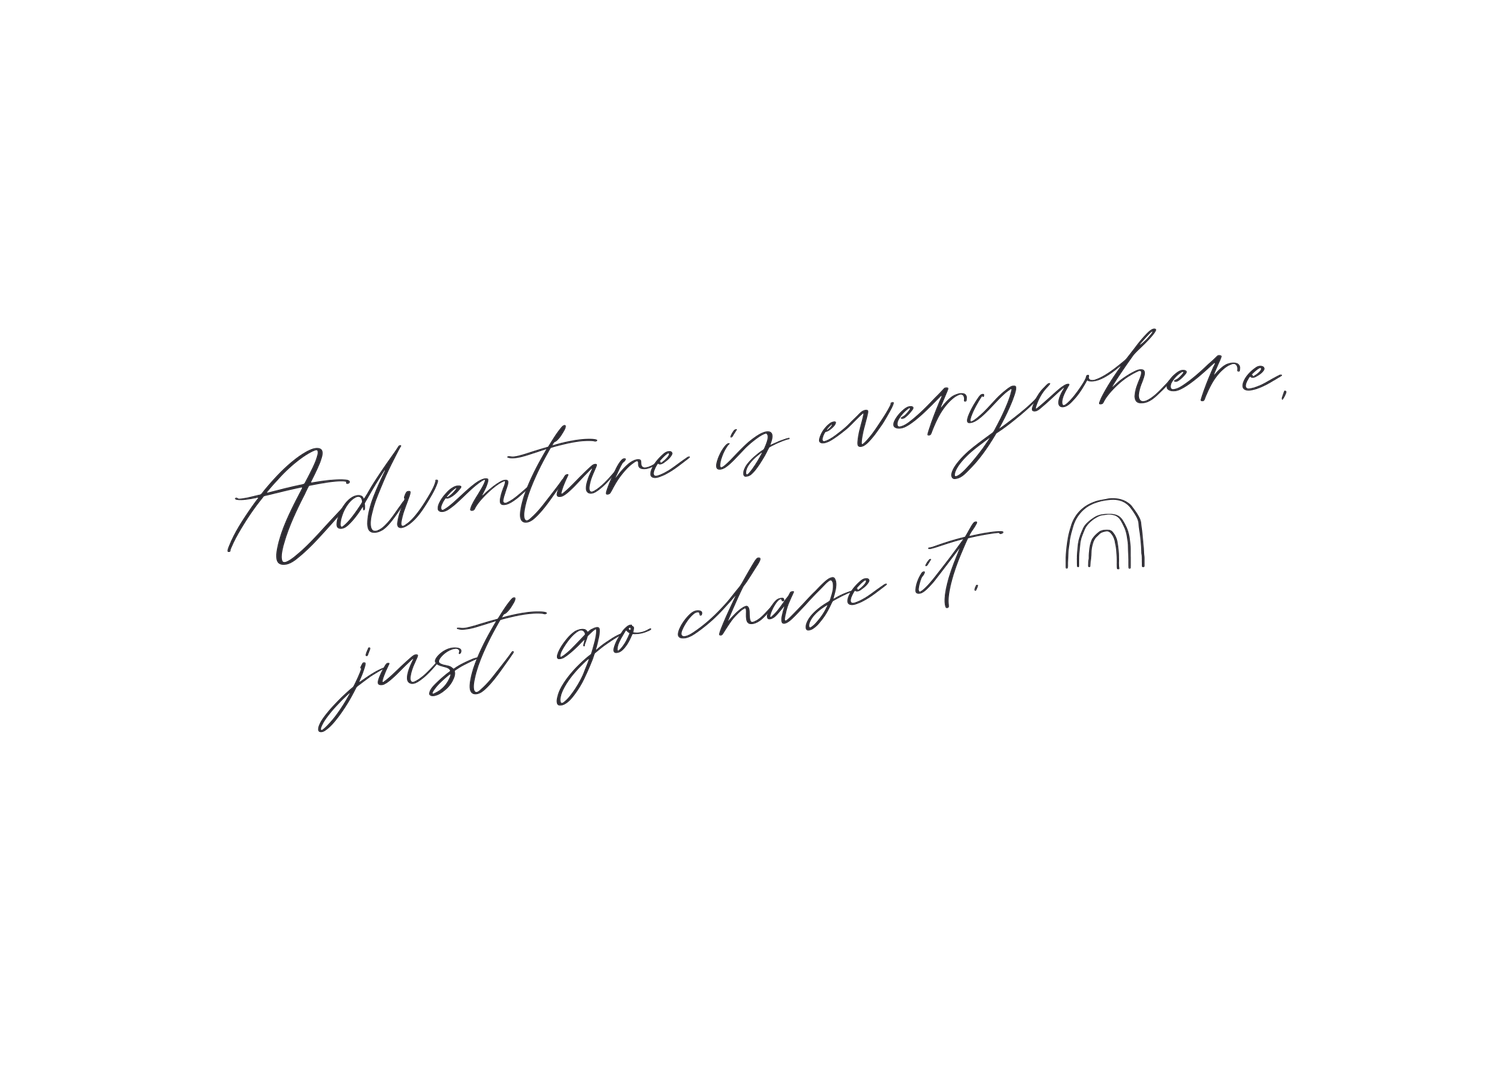 Adventure is everywhere,
just go chase it.